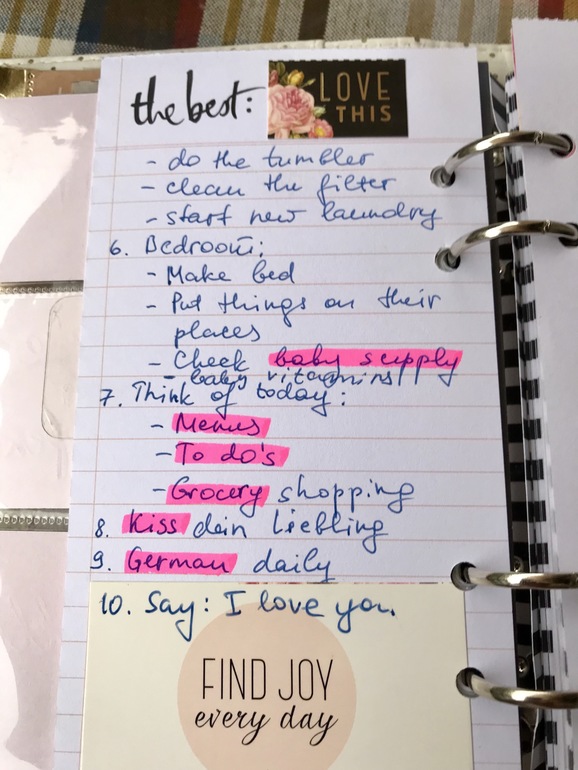 the best:
LOVE
THIS
- do the tumbler
- clean the filter
- start new laundry
6. Bedroom:
- Make bed
- Put things on their
places
- Check baby supply
- baby vitamins
7. Think of today:
- Menus
- To do's
- Grocery shopping
8. Kiss dein Liebling
9. German daily
10. Say: I love you.
FIND JOY
every day